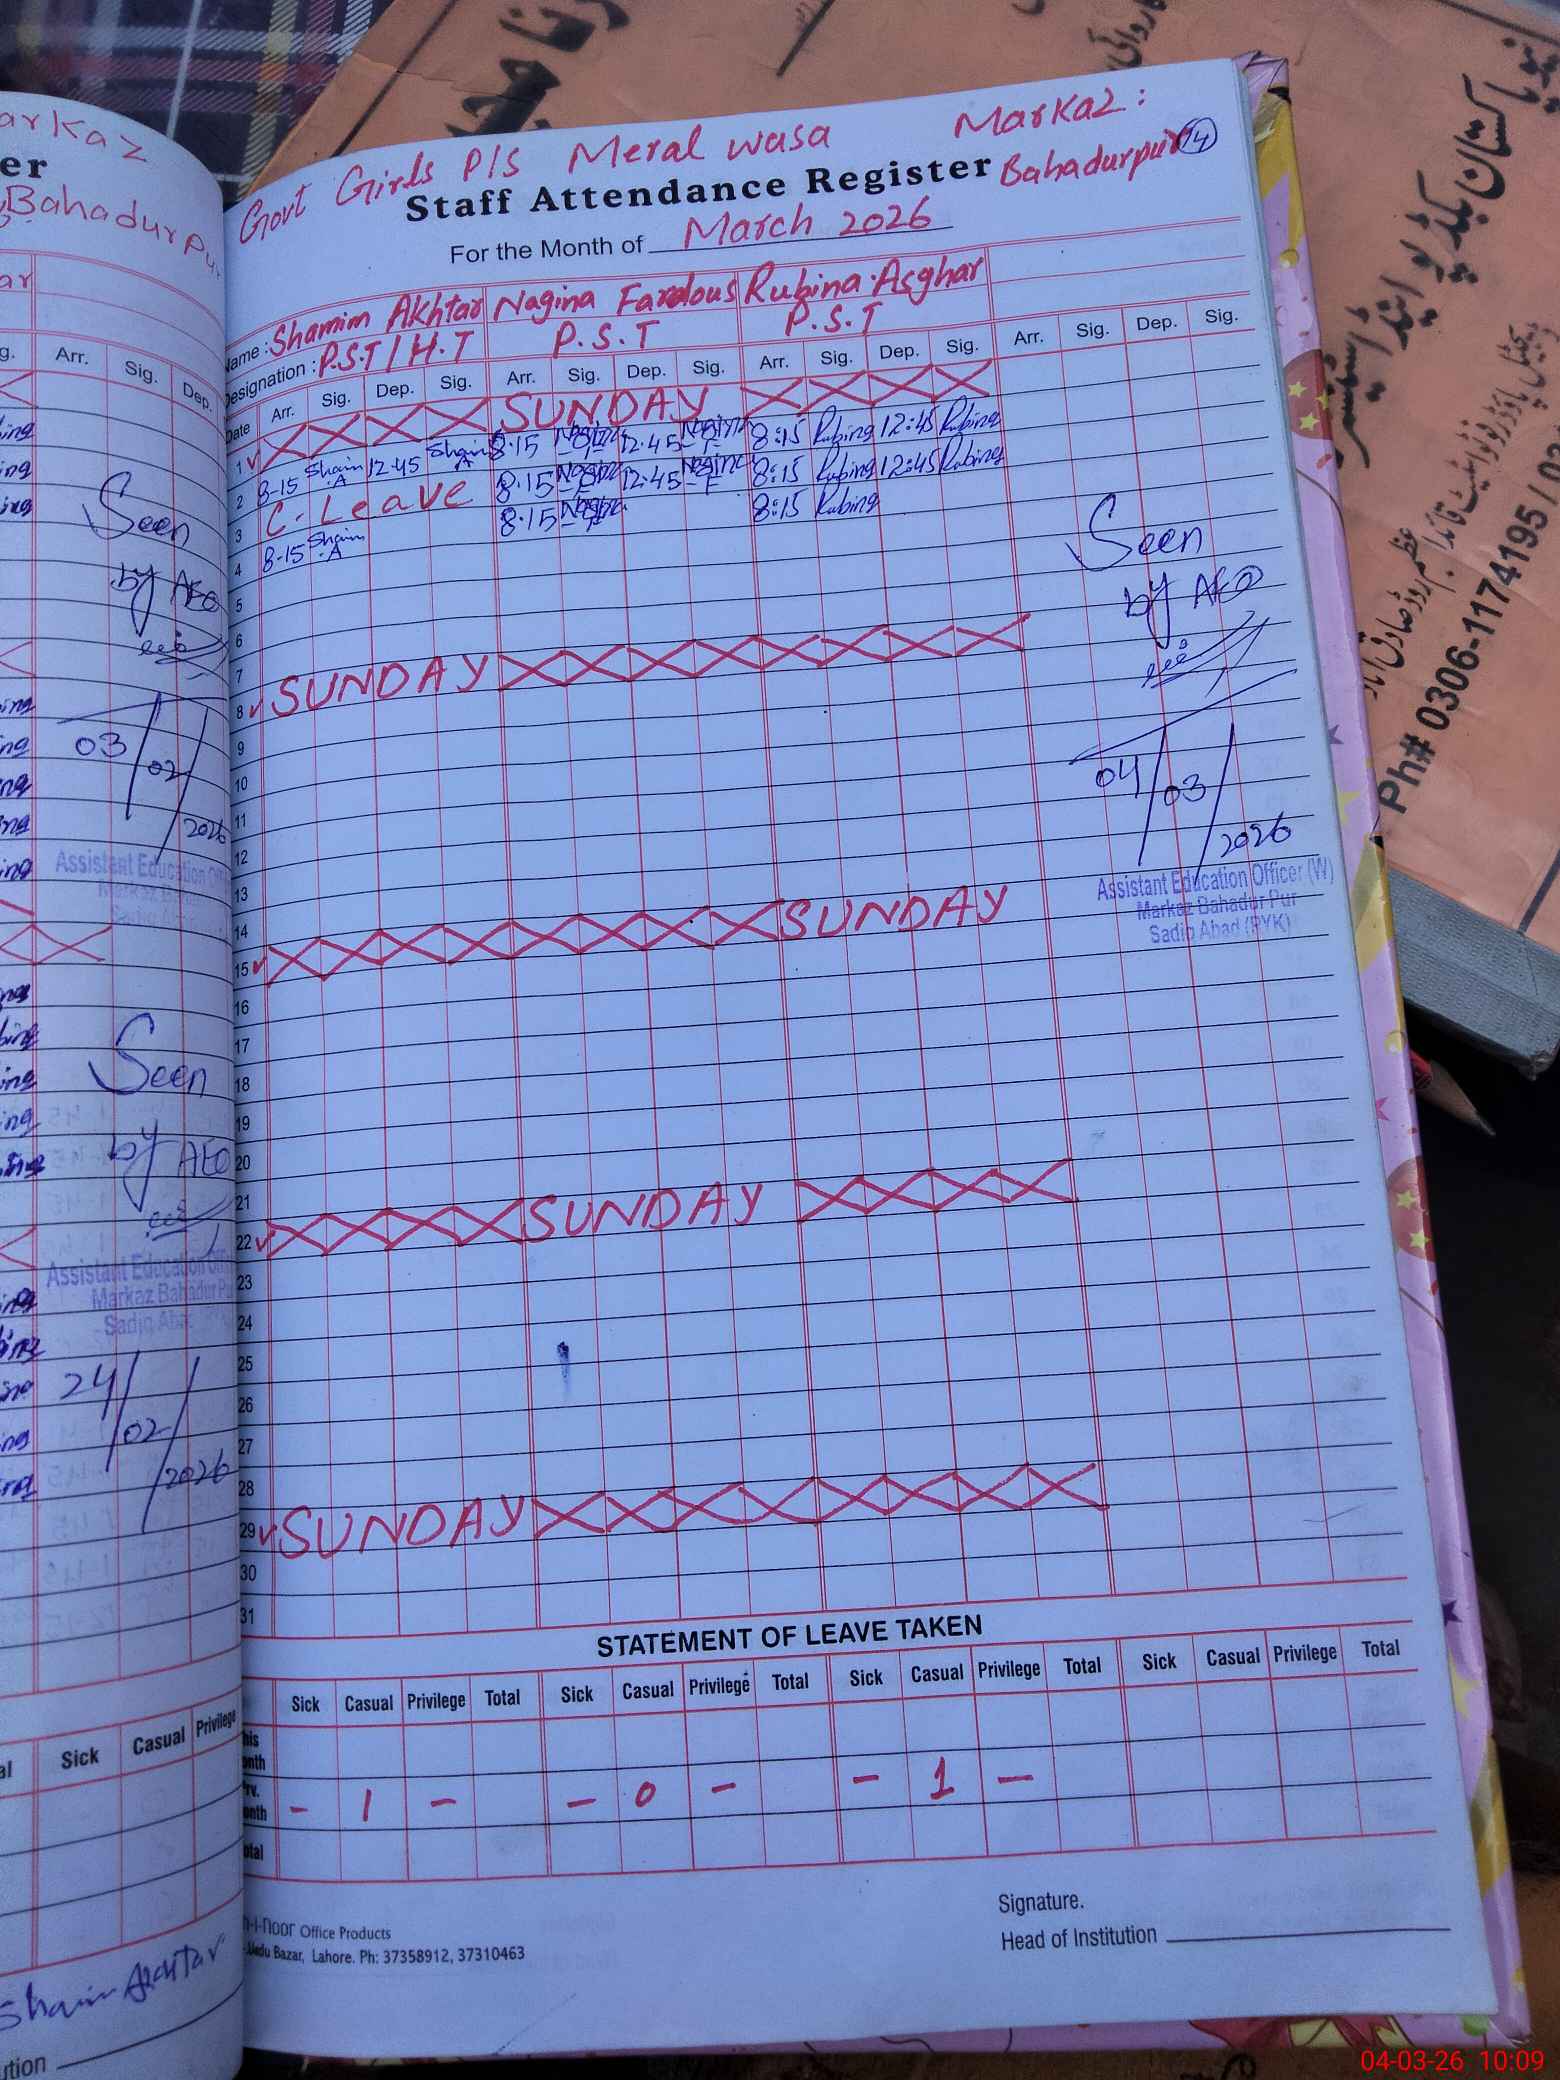 Govt Girls P/S Meral wasa Markaz:
Bahadurpur 14
Staff Attendance Register
For the Month of March 2026
Name : Shamim Akhtar Nagina Fardous Rubina Asghar
Designation : P.S.T / H.T P.S.T P.S.T
Date Arr. Sig. Dep. Sig. Arr. Sig. Dep. Sig. Arr. Sig. Dep. Sig. Arr. Sig. Dep. Sig.
1 SUNDAY
2 8-15 Sham A 12-45 Sham A 8-15 Nagina F 12-45 Nagina F 8:15 Rubina 12:45 Rubina
3 C. Leave 8-15 Nagina F 12-45 Nagina F 8:15 Rubina 12:45 Rubina
4 8-15 Sham A 8-15 Nagina F 8:15 Rubina
5
6
7
8 SUNDAY
9
10
11
12
13
14
15 SUNDAY
16
17
18
19
20
21
22 SUNDAY
23
24
25
26
27
28
29 SUNDAY
30
31
Seen
by AEO
04/03/2026
Assistant Education Officer (W)
Markaz Bahadur Pur
Sadiq Abad (RYK)
STATEMENT OF LEAVE TAKEN
Sick Casual Privilege Total Sick Casual Privilege Total Sick Casual Privilege Total Sick Casual Privilege Total
- 1 - - 0 - - 1 -
Signature.
Head of Institution
Office Products
Bazar, Lahore. Ph: 37358912, 37310463
Bahadurpur
Arr. Sig. Dep.
Seen
by AEO
03/02/2026
Assistant Education
Seen
by AEO
Assistant Education
Markaz Bahadur Pur
24/02/2026
Sick Casual Privilege
Sham Akhtar
Ph# 0306-1174195
04-03-26 10:09